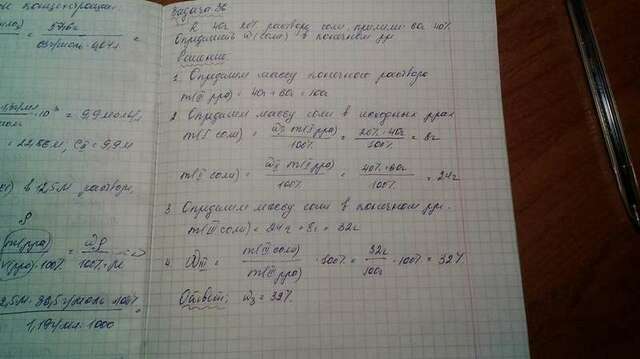 ие концентрации
576г
63г/моль · 4,07л
= 9,9 моль/л
= 22,8см, Cн = 9,9м
в 12,5м раствора,
m(рра)
100%
1,19г/мл · 1000
Задача 36
К 40г 20% раствора соли прилили 60г 40%
Определить ω(соли) в конечном рре
Решение
1. Определим массу конечного раствора
m(III рра) = 40г + 60г = 100г
2. Определим массу соли в исходных ррах
m(I соли) = ωI m(I рра) / 100% = 20% · 40г / 100% = 8г
m(II соли) = ωII m(II рра) / 100% = 40% · 60г / 100% = 24г
3. Определим массу соли в конечном рре.
m(III соли) = 24г + 8г = 32г
4. ωIII = m(III соли) / m(III рра) · 100% = 32г / 100г · 100% = 32%
Ответ: ω3 = 32%.